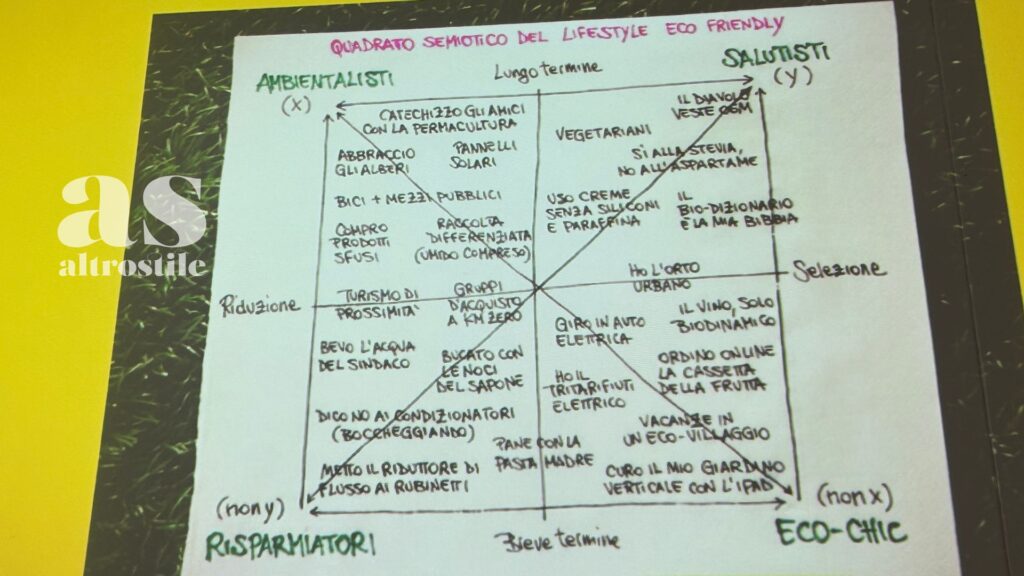 QUADRATO SEMIOTICO DEL LIFESTYLE ECO FRIENDLY
AMBIENTALISTI
(x)
Lungo termine
SALUTISTI
(y)
CATECHIZZO GLI AMICI
CON LA PERMACULTURA
IL DIAVOLO
VESTE OGM
VEGETARIANI
ABBRACCIO
GLI ALBERI
PANNELLI
SOLARI
SÌ ALLA STEVIA,
NO ALL'ASPARTAME
BICI + MEZZI PUBBLICI
USO CREME
SENZA SILICONI
E PARAFFINA
IL
BIO-DIZIONARIO
È LA MIA BIBBIA
COMPRO
PRODOTTI
SFUSI
RACCOLTA
DIFFERENZIATA
(UMIDO COMPRESO)
as
altrostile
Riduzione
Selezione
TURISMO DI
PROSSIMITÀ
GRUPPI
D'ACQUISTO
A KM ZERO
HO L'ORTO
URBANO
GIRO IN AUTO
ELETTRICA
IL VINO, SOLO
BIODINAMICO
BEVO L'ACQUA
DEL SINDACO
BUCATO CON
LE NOCI
DEL SAPONE
HO IL
TRITARIFIUTI
ELETTRICO
ORDINO ONLINE
LA CASSETTA
DELLA FRUTTA
DICO NO AI CONDIZIONATORI
(BOCCHEGGIANDO)
PANE CON LA
PASTA MADRE
VACANZE IN
UN ECO-VILLAGGIO
METTO IL RIDUTTORE DI
FLUSSO AI RUBINETTI
CURO IL MIO GIARDINO
VERTICALE CON L'IPAD
(non y)
RISPARMIATORI
Breve termine
(non x)
ECO-CHIC